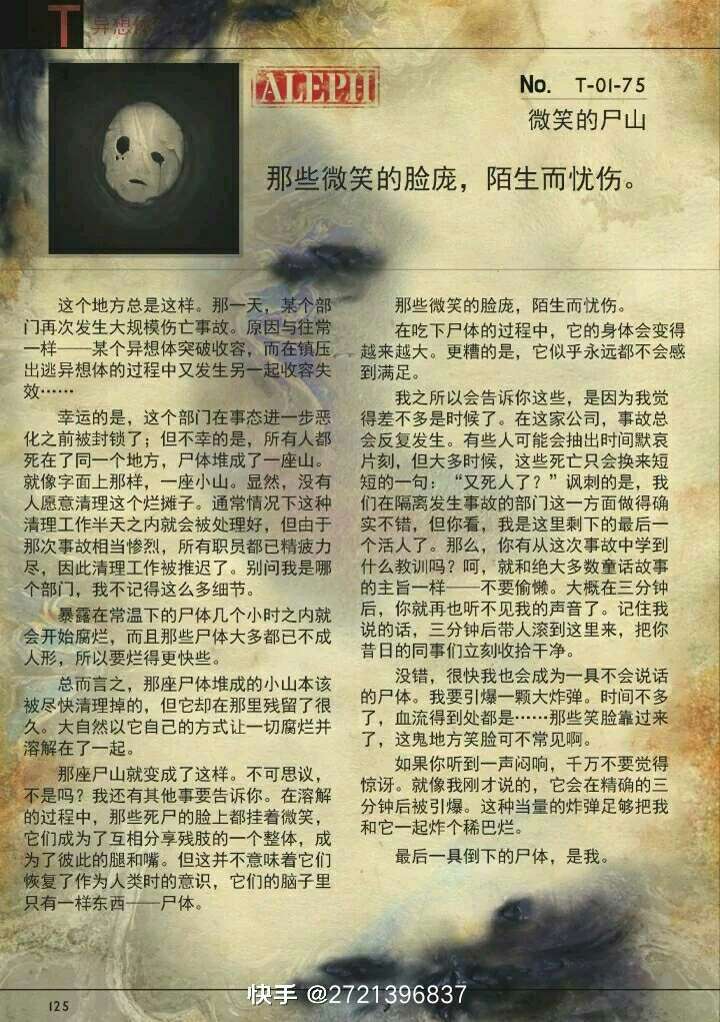 T 异想体
ALEPH
No. T-01-75
微笑的尸山
那些微笑的脸庞，陌生而忧伤。
这个地方总是这样。那一天，某个部
门再次发生大规模伤亡事故。原因与往常
一样——某个异想体突破收容，而在镇压
出逃异想体的过程中又发生另一起收容失
效……
幸运的是，这个部门在事态进一步恶
化之前被封锁了；但不幸的是，所有人都
死在了同一个地方，尸体堆成了一座山。
就像字面上那样，一座小山。显然，没有
人愿意清理这个烂摊子。通常情况下这种
清理工作半天之内就会被处理好，但由于
那次事故相当惨烈，所有职员都已精疲力
尽，因此清理工作被推迟了。别问我是哪
个部门，我不记得这么多细节。
暴露在常温下的尸体几个小时之内就
会开始腐烂，而且那些尸体大多都已不成
人形，所以要烂得更快些。
总而言之，那座尸体堆成的小山本该
被尽快清理掉的，但它却在那里残留了很
久。大自然以它自己的方式让一切腐烂并
溶解在了一起。
那座尸山就变成了这样。不可思议，
不是吗？我还有其他事要告诉你。在溶解
的过程中，那些死尸的脸上都挂着微笑，
它们成为了互相分享残肢的一个整体，成
为了彼此的腿和嘴。但这并不意味着它们
恢复了作为人类时的意识，它们的脑子里
只有一样东西——尸体。
那些微笑的脸庞，陌生而忧伤。
在吃下尸体的过程中，它的身体会变得
越来越大。更糟的是，它似乎永远都不会感
到满足。
我之所以会告诉你这些，是因为我觉
得差不多是时候了。在这家公司，事故总
会反复发生。有些人可能会抽出时间默哀
片刻，但大多时候，这些死亡只会换来短
短的一句：“又死人了？”讽刺的是，我
们在隔离发生事故的部门这一方面做得确
实不错，但你看，我是这里剩下的最后一
个活人了。那么，你有从这次事故中学到
什么教训吗？呵，就和绝大多数童话故事
的主旨一样——不要偷懒。大概在三分钟
后，你就再也听不见我的声音了。记住我
说的话，三分钟后带人滚到这里来，把你
昔日的同事们立刻收拾干净。
没错，很快我也会成为一具不会说话
的尸体。我要引爆一颗大炸弹。时间不多
了，血流得到处都是……那些笑脸靠过来
了，这鬼地方笑脸可不常见啊。
如果你听到一声闷响，千万不要觉得
惊讶。就像我刚才说的，它会在精确的三
分钟后被引爆。这种当量的炸弹足够把我
和它一起炸个稀巴烂。
最后一具倒下的尸体，是我。
快手 @2721396837
125